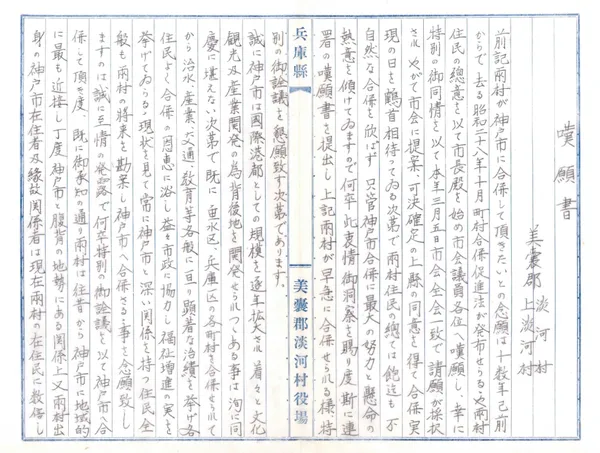 嘆願書
美嚢郡 淡河村
上淡河村
前記両村が神戸市に合併して頂きたいとの念願は十数年己前
からで去る昭和二十八年十月町村合併促進法が発布せらるゝや両村
住民の總意を以て市長殿を始め市会議員各位へ嘆願し、幸に
特別の御同情を以て本年三月五日市会全会一致で請願が採択
され、やがて市会に提案、可決確定の上縣の同意を得て合併実
現の日を鶴首相待ってゐる次第で両村住民の總ては飽迄も不
自然な合併を欣ばず只管神戸市合併に最大の努力と懸命の
熱意を傾けてゐますので何卒此衷情御洞察を賜り度斯に連
署の嘆願書を提出し上記両村が早急に合併せられる様特
兵庫縣
美嚢郡淡河村役場
別の御詮議を懇願致す次第であります。
誠に神戸市は國際港都としての規模を逐年拡大され着々と文化
観光及産業開発の為背後地を開発せられつゝある事は洵に同
慶に堪えない次第で既に垂水区、兵庫区の各町村を合併せられて
から治水、産業、交通、教育等各般に亘り顕著な治績を挙げ各
住民よく合併の恩恵に浴し益々市政に協力し福祉増進の実を
挙げてゐらる、現状を見て常に神戸市と深い関係を持つ住民全
般も両村の将来を勘案し神戸市へ合併さるゝ事を念願致し
ますのは誠に至情の発露で何卒特別の御詮議を以て神戸市へ合
併して頂き度、既に御承知の通り両村は往昔から神戸市に地域的
に最も近接し丁度神戸市と腹背の地勢にある関係上又両村出
身の神戸市在住者及縁故関係者は現在両村の在住民に数倍し